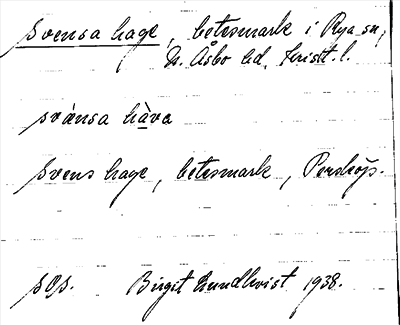 Svensa hage, betesmark i Rya sn,
N. Åsbo hd, Krist. l.
svánsa hàva
Svens hage, betesmark, Perstorp.
sOp. Birgit Lundkvist 1938.